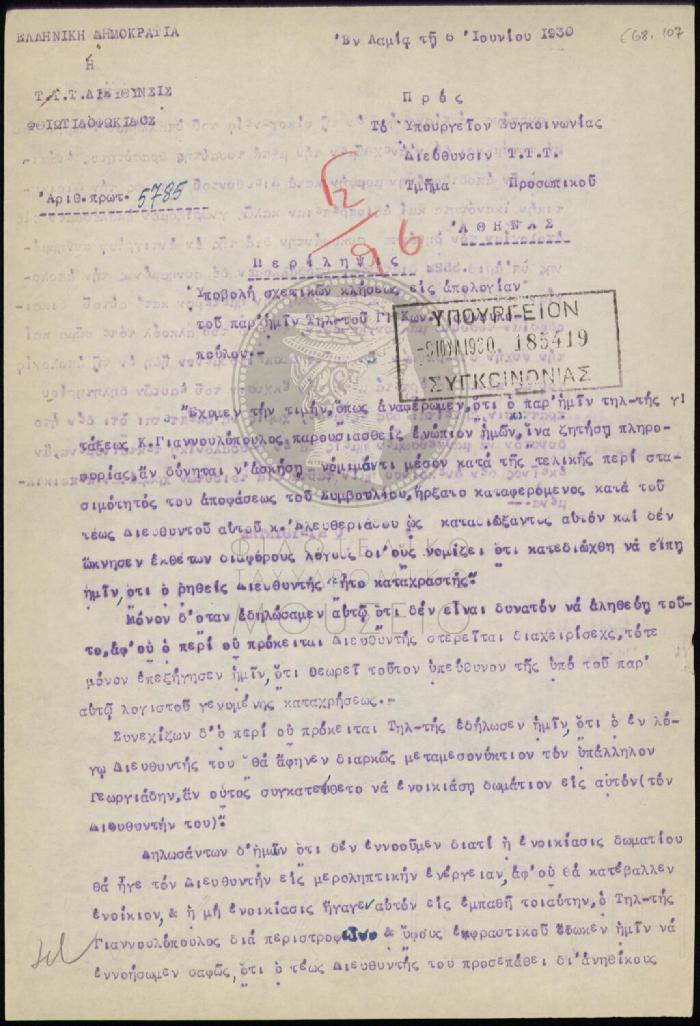 ΕΛΛΗΝΙΚΗ ΔΗΜΟΚΡΑΤΙΑ
Η
Τ.Τ.Τ.ΔΙΕΥΘΥΝΣΙΣ
ΦΘΙΩΤΙΔΟΦΩΚΙΔΟΣ
Ἀριθ.πρωτ. 5785
Ἐν Λαμίᾳ τῇ 6 Ἰουνίου 1930
668.107
Πρός
Τό Ὑπουργεῖον Συγκοινωνίας
Διεύθυνσιν Τ.Τ.Τ.
Τμῆμα Προσωπικοῦ
ἈΘΗΝΑΣ
12/96
Περίληψις
Ὑποβολή σχετικῶν κλήσεως εἰς ἀπολογίαν
τοῦ παρ' ἡμῖν Τηλ-τοῦ Γ!
πούλου.-
ΥΠΟΥΡΓΕΙΟΝ
185419
ΣΥΓΚΟΙΝΩΝΙΑΣ
Ἔχομεν τήν τιμήν, ὅπως ἀναφέρωμεν, ὅτι ὁ παρ' ἡμῖν τηλ-τής γ!
τάξεως Κ.Γιαννουλόπουλος παρουσιασθείς ἐνώπιον ἡμῶν, ἵνα ζητήσῃ πληρο-
φορίας, ἄν δύνηται ν' ἀσκήσῃ νόμιμόντι μέσον κατά τῆς τελικῆς περί στα-
σιμότητός του ἀποφάσεως τοῦ Συμβουλίου, ἤρξατο καταφερόμενος κατά τοῦ
τέως Διευθυντοῦ αὐτοῦ κ. Ἐλευθεριάδου ὡς καταδιώξαντος αὐτόν καί δέν
ὤκνησεν ἐκθέτων διαφόρους λόγους δι' οὕς νομίζει ὅτι κατεδιώχθη νά εἴπῃ
ἡμῖν, ὅτι ὁ ρηθείς Διευθυντής "ἦτο καταχραστής"
Μόνον δ' ὅταν ἐδηλώσαμεν αὐτῷ ὅτι δέν εἶναι δυνατόν νά ἀληθεύῃ τοῦ-
το, ἀφ' οὗ ὁ περί οὗ πρόκειται Διευθυντής στερεῖται διαχειρίσεχς, τότε
μόνον ἐπεξήγησεν ἡμῖν, ὅτι θεωρεῖ τοῦτον ὑπεύθυνον τῆς ὑπό τοῦ παρ'
αὐτῷ λογιστοῦ γενομένης καταχρήσεως.-
Συνεχίζων δ' ὁ περί οὗ πρόκειται Τηλ-τής ἐδήλωσεν ἡμῖν, ὅτι ὁ ἐν λό-
γῳ Διευθυντής του "θά ἄφηνεν διαρκῶς μεταμεσονύκτιον τόν ὑπάλληλον
Γεωργιάδην, ἄν οὗτος συγκατετίθετο νά ἐνοικιάσῃ δωμάτιον εἰς αὐτόν(τόν
Διευθυντήν του)"
Δηλωσάντων δ' ἡμῶν ὅτι δέν ἐννοοῦμεν διατί ἡ ἐνοικίασις δωματίου
θά ἦγε τόν Διευθυντήν εἰς μεροληπτικήν ἐνέργειαν, ἀφ' οὗ θά κατέβαλλεν
ἐνοίκιον, & ἡ μή ἐνοικίασις ἤγαγεν αὐτόν εἰς ἐμπαθῆ τοιαύτην, ὁ Τηλ-τής
Γιαννουλόπουλος διά περιστροφῶν & ὕφους ἐκφραστικοῦ ἔδωκεν ἡμῖν νά
ἐννοήσωμεν σαφῶς, ὅτι ὁ τέως Διευθυντής του προσεπάθει δι' ἀνηθίκους
ΦΙΛΟΤΕΛΙΚΟ
ΤΑΧΥΔΡΟΜΙΚΟ
ΜΟΥΣΕΙΟ